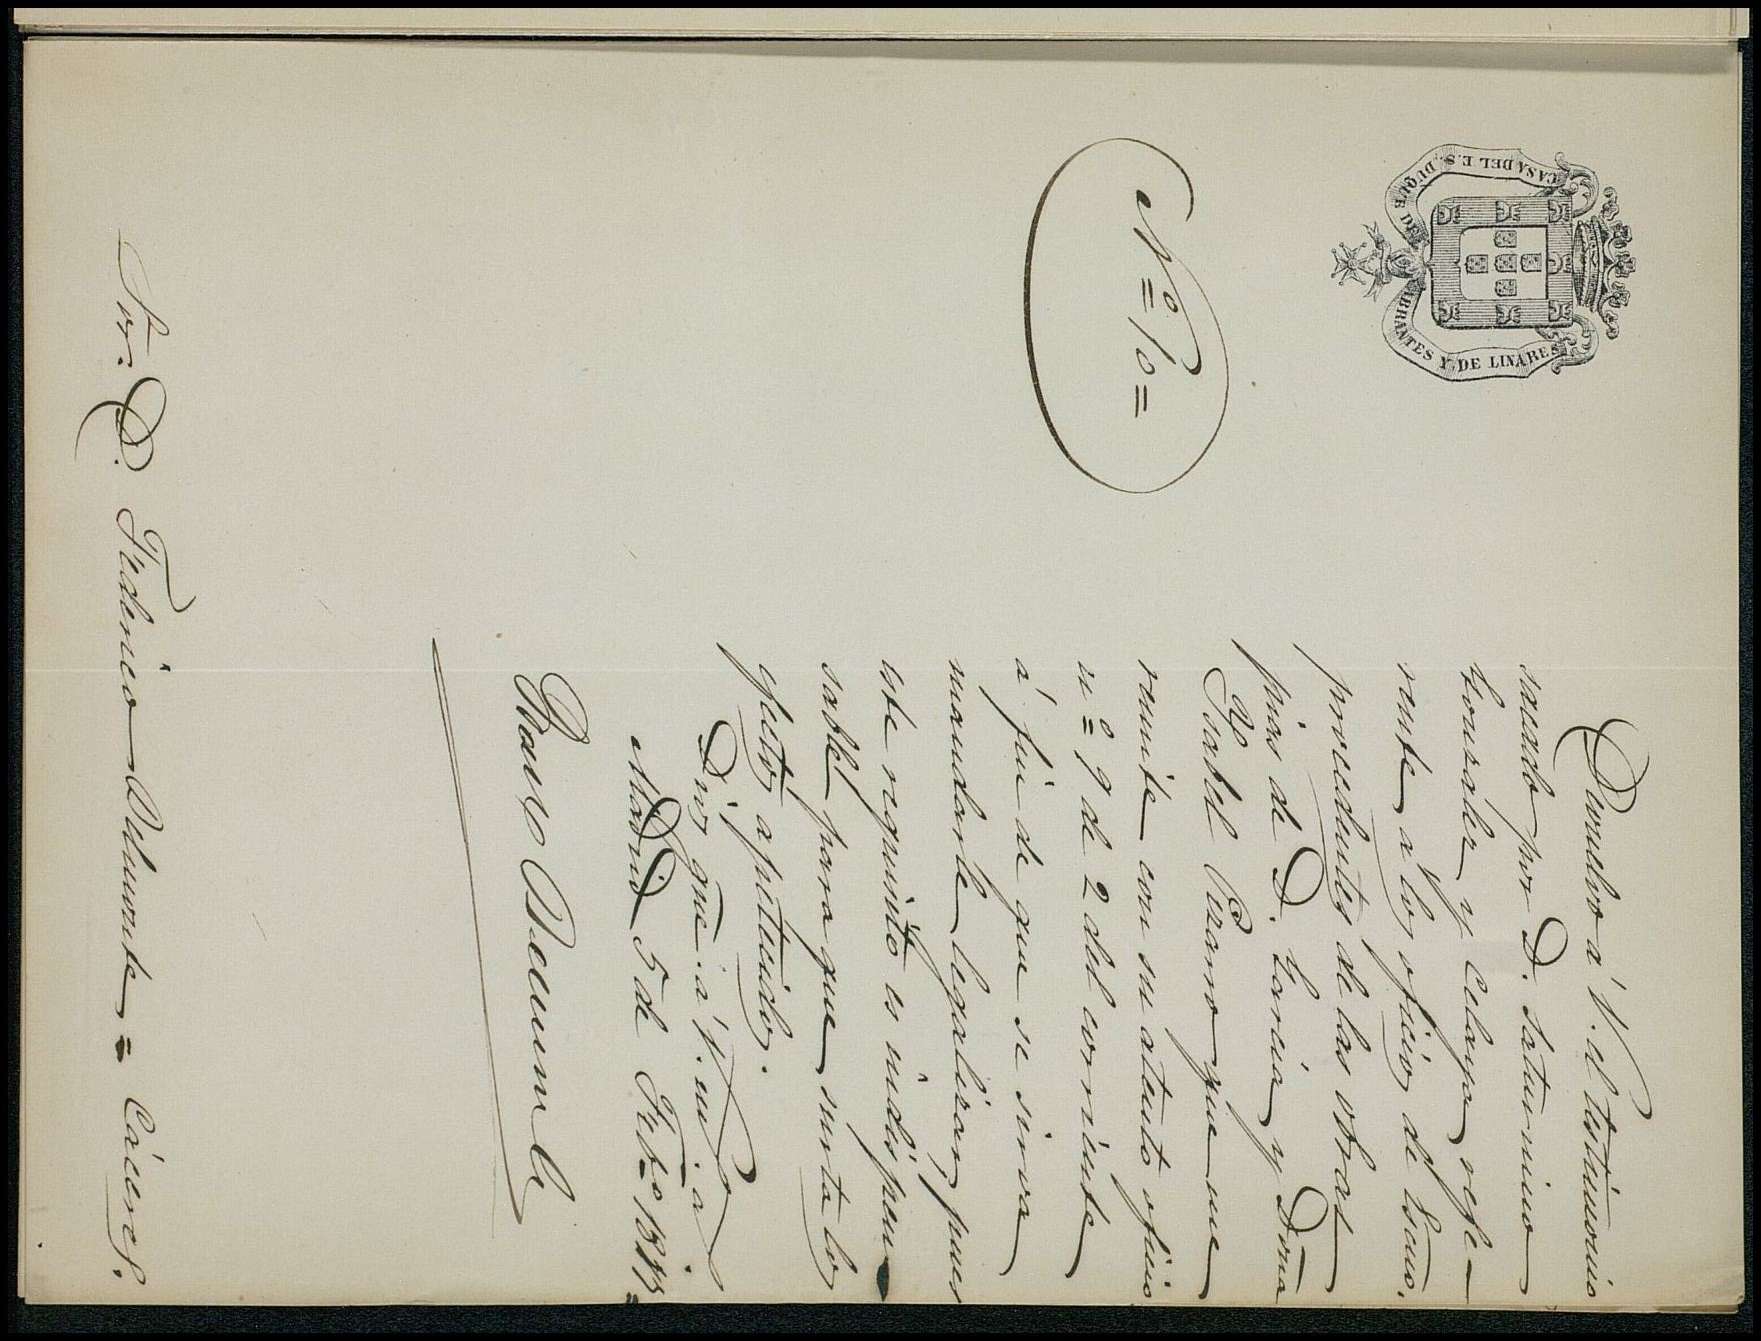 CASA DEL E.S. DUQUE DE ABRANTES Y DE LINARES
Nº 10=
Devuelvo á V. el testimonio
sacado por D. Saturnino
Gonzalez y Celaya refe-
rente á los oficios de
procedentes de las obras
pias de D. Garcia y Dona
Ysabel Pizarro que me
remite con su atento oficio
nº 9 de 2 del corriente
á fin de que se sirva
mandarle legalizar, pues
este requisito es indispen
sable para que surta los
efectos apetecidos.
Dios gue. á V. m. a.
Madrid 5 de Febº 1875=
Sor. D. Federico Belmonte = Cáceres.